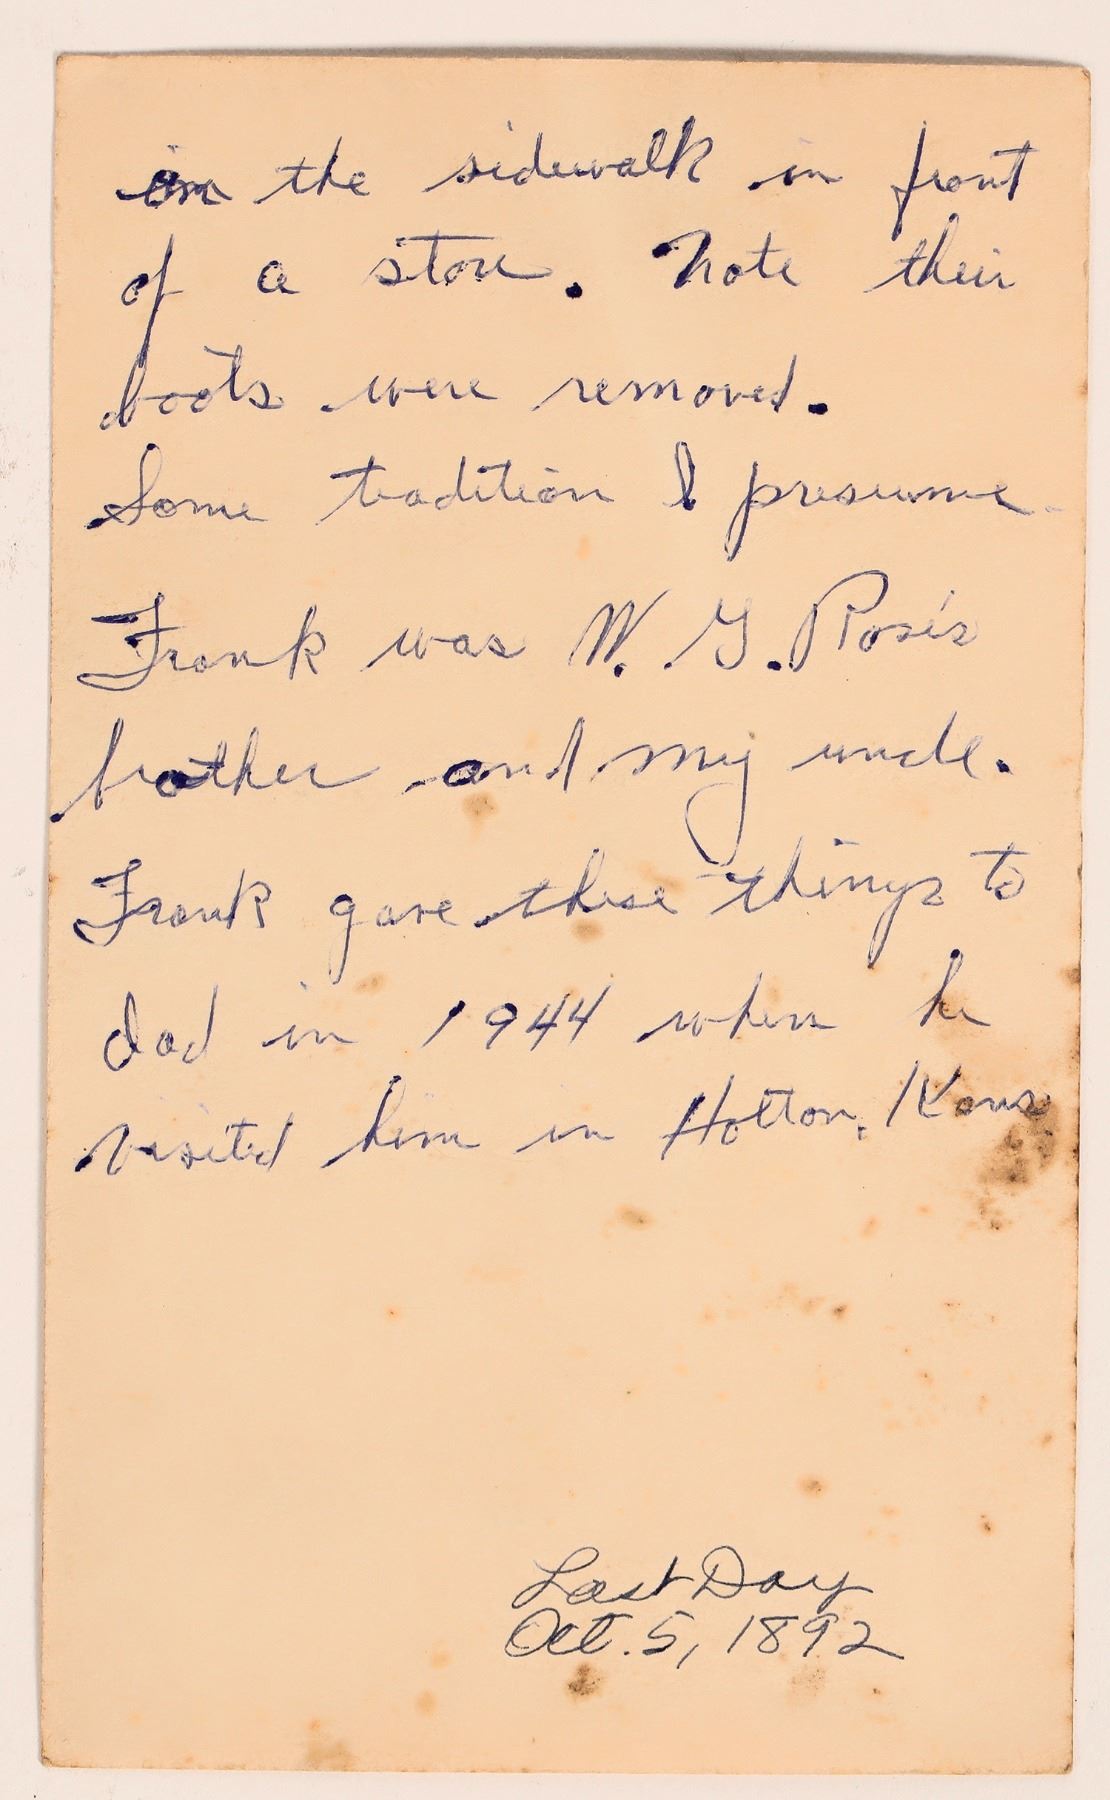 on the sidewalk in front
of a store. Note their
boots were removed.
Some tradition I presume.
Frank was W. G. Rose's
brother and my uncle.
Frank gave these things to
dad in 1944 when he
visited him in Holton, Kans
Last Day
Oct. 5, 1892